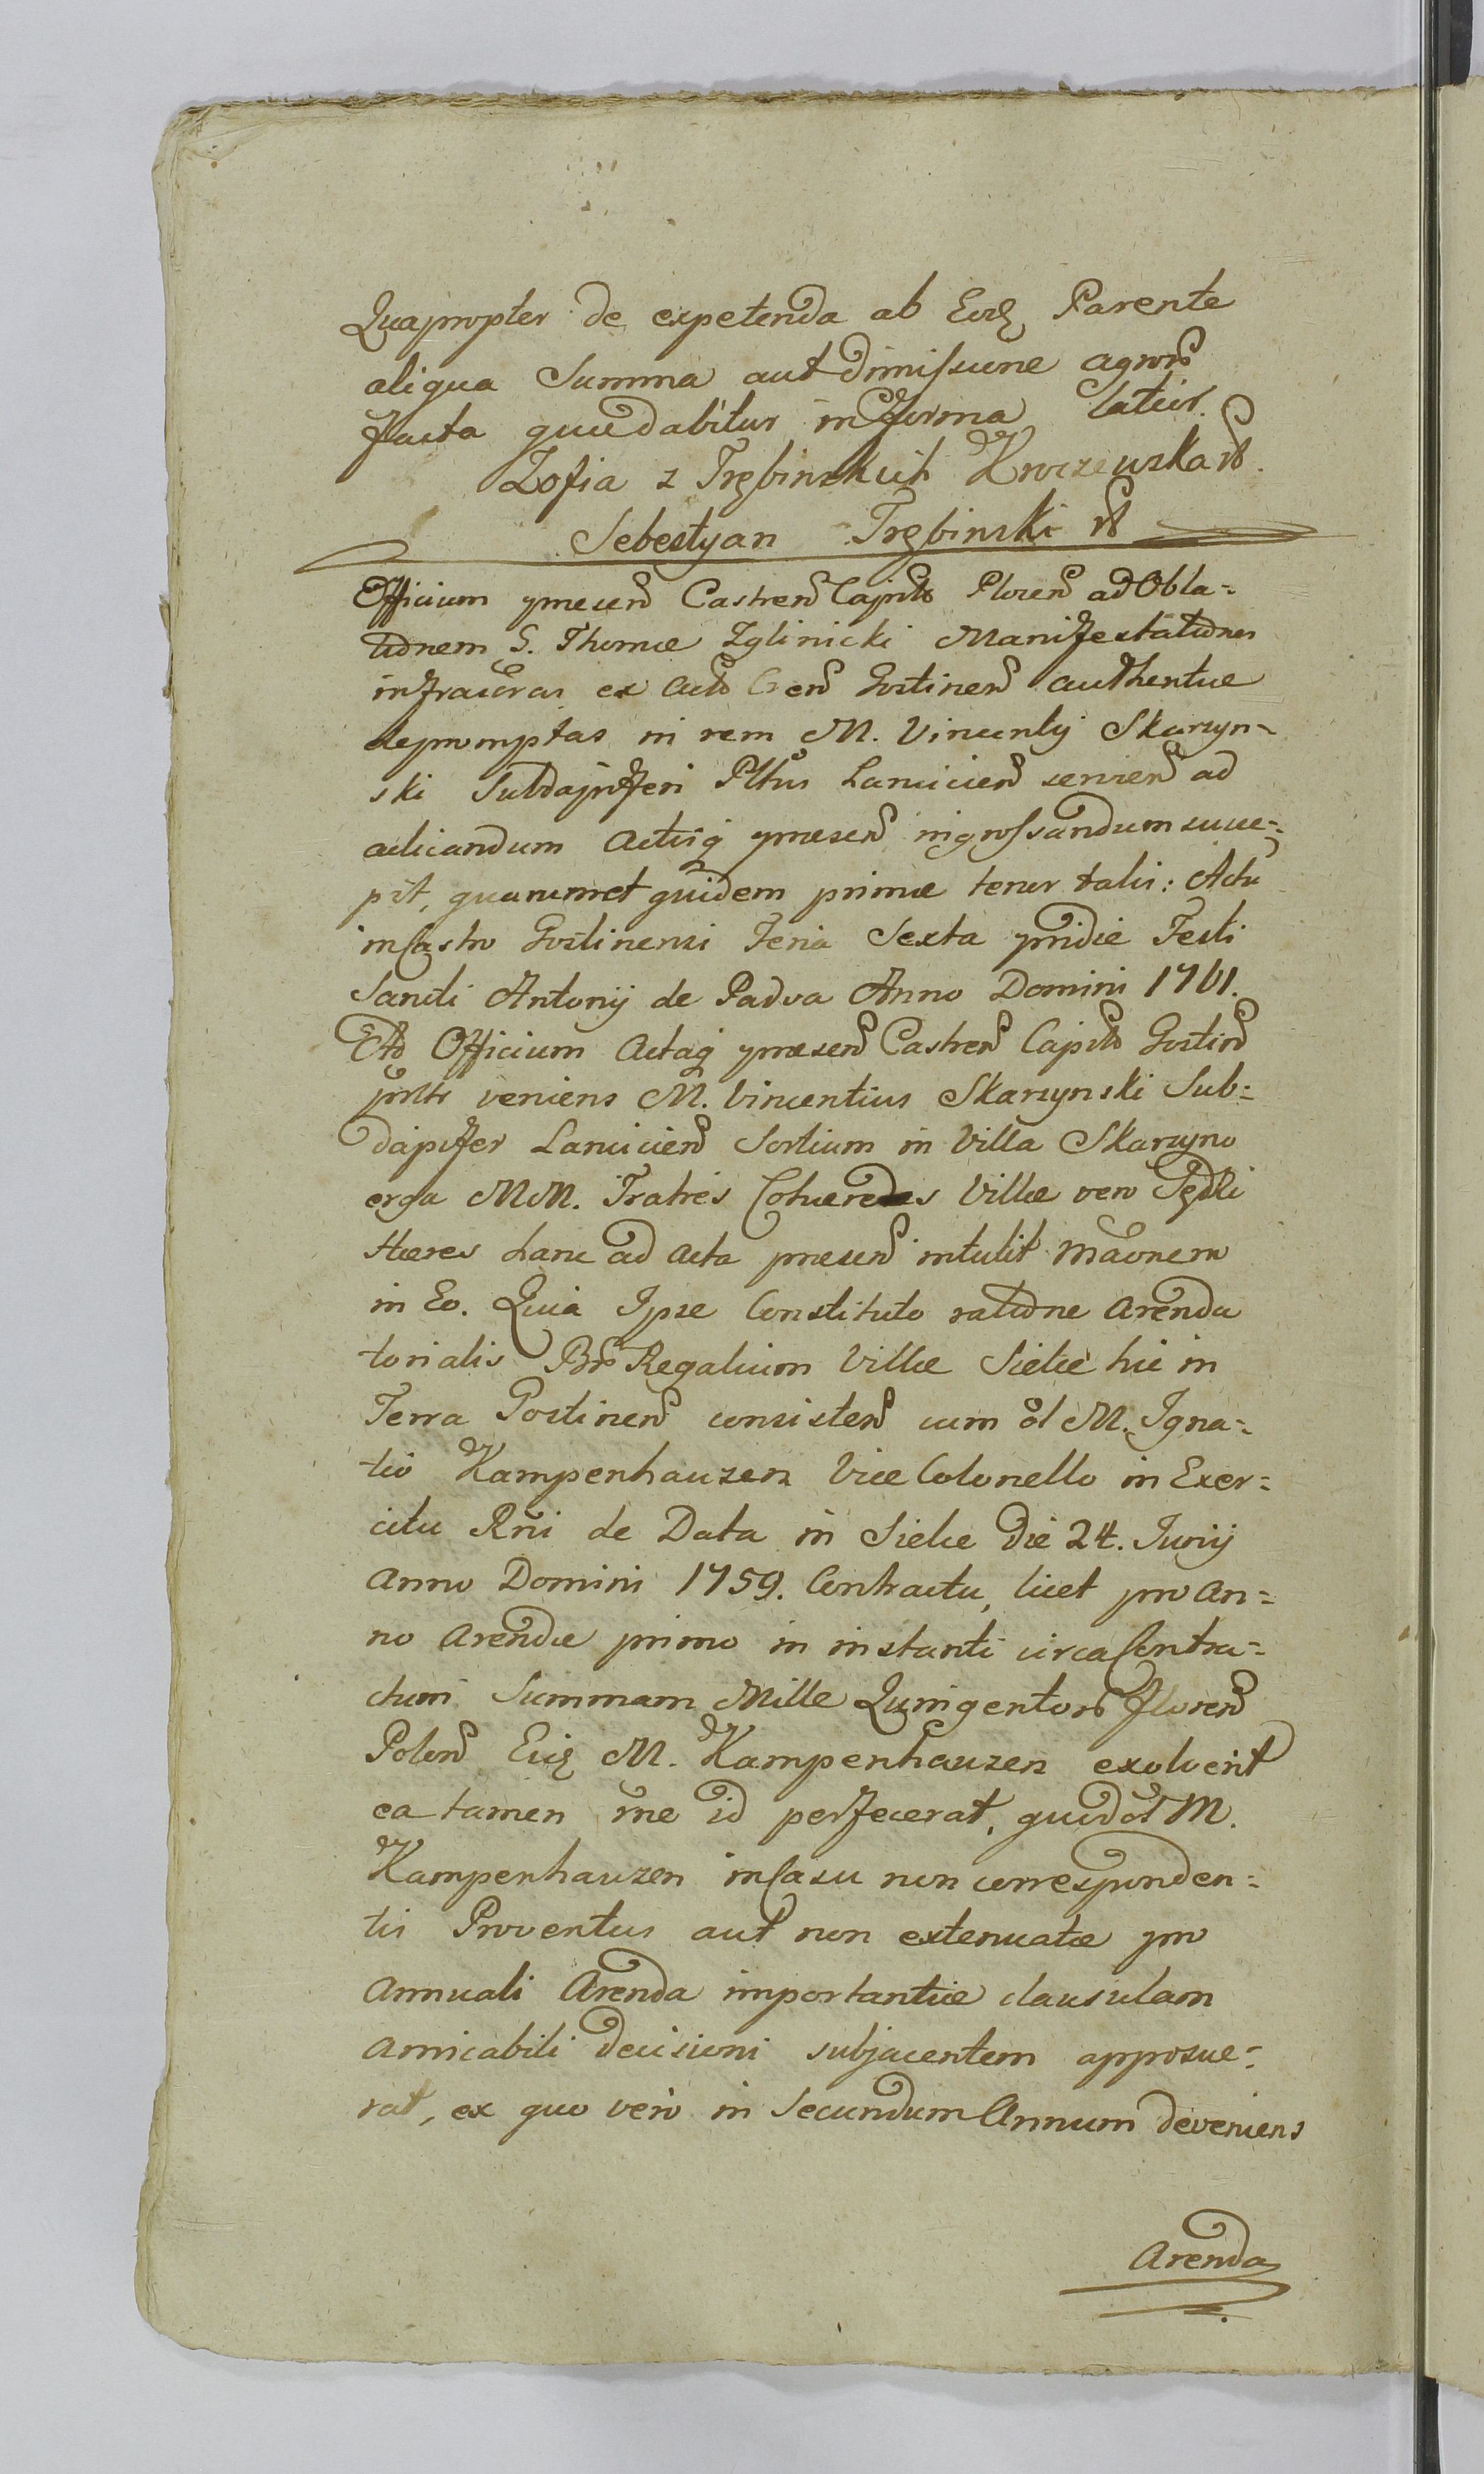 Quapropter de expetenda ab Eodz Parente
aliqua Summa aut dimissione agror
facta quae dabitur in forma latior.
Zofia z Trębinskich Kroczewska
Sebestyan Trębinski
Officium praesen Castren Capit Plocen ad Obla=
tionem G. Thomae Zglinicki Manifestationes
infrascras ex Actis Cren Gostinen authentice
depromptas in rem M. Vincentij Skarzyn=
ski Subdapiferi Pltus Lancicien servien ad
acticandum Actisq praesen ingrossandum susce=
pit, quarumet quidem primae tenor talis: Actu
in Castro Gostinensi Feria Sexta pridie Festi
Sancti Antonij de Padva Anno Domini 1761.
Ad Officium Actaq praesen Castren Capit Gostin
psltr veniens M. Vincentius Skarzynski Sub=
dapifer Lancicien Sortium in Villa Skarzyno
erga MM. Fratres Cohaeredes Villae vero
Haeres hanc ad Acta praesen intulit Maonem
in Eo. Quia Ipse Constituto ratione Arenda
torialis Bnr Regalium Villae Sielce hic in
Terra Gostinen consisten cum ol M. Igna=
tio Kampenhauzen Vice Colonello in Exer=
citu Rni de Data in Sielce Die 24. Junij
Anno Domini 1759. Contractu, licet pro An=
no Arendae primo in instanti circa Contra=
ctum Summam Mille Quingentor floren
Polon Eidz M. Kampenhauzen exolverit
ea tamen rne id perfecerat, quid ol M.
Kampenhauzen in Casu non corresponden=
tis Proventus aut non extenuatae pro
Annuali Arenda importantiae clausulam
amicabili decisioni subjacentem apposue=
rat, ex quo vero in Secundum Annum deveniens
Arenda